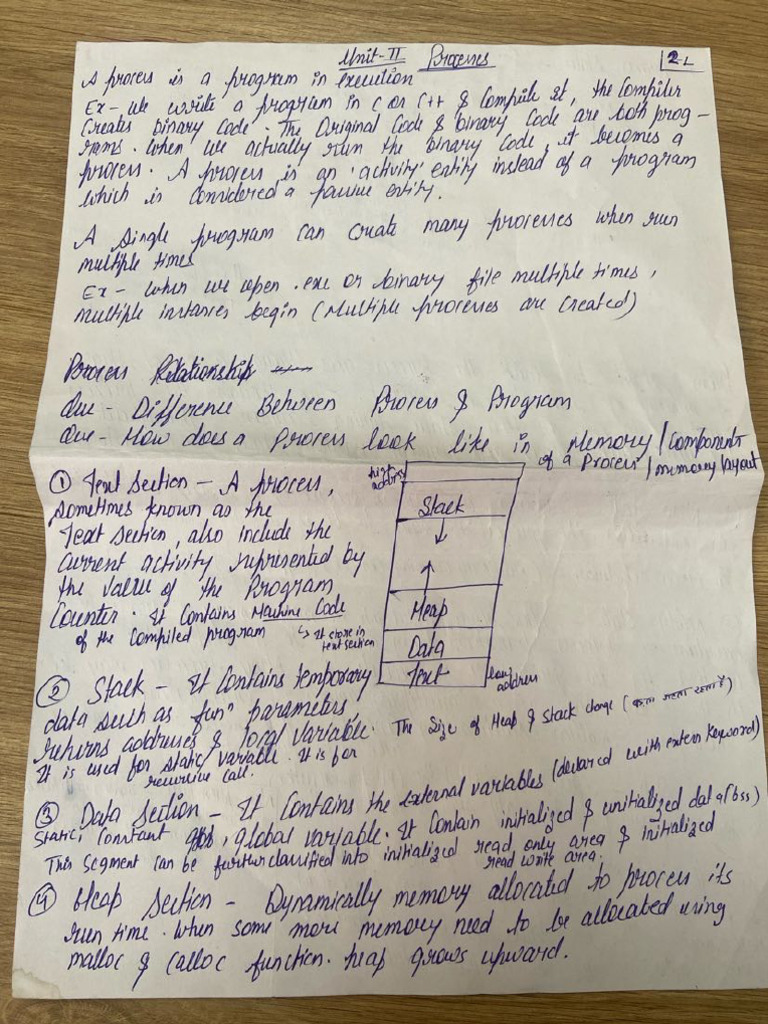 Unit-II Processes
2-L
A process is a program in execution
Ex - we write a program in C or C++ & Compile it, the Compiler
Creates binary Code. The Original Code & binary Code are both prog-
rams. when we actually run the binary Code, it becomes a
process. A process is an 'activity' entity instead of a program
which is considered a passive entity.
A single program can create many processes when run
multiple times
Ex - when we open .exe or binary file multiple times,
multiple instances begin (Multiple processes are created)
Process Relationship
Que - Difference Between Process & Program
Que - How does a Process look like in Memory / Components
of a Process / memory layout
① Text Section - A process,
sometimes known as the
Text Section, also include the
Current activity represented by
the value of the Program
Counter. It Contains Machine Code
of the Compiled program
↳ It store in
text section
high
address
Stack
Heap
Data
Text
low
address
② Stack - It Contains temporary
data such as funⁿ parameters,
returns addresses & local variable. The Size of Heap & Stack change
It is used for static variable. It is for
recursive call.
③ Data Section - It Contains the external variables (declared with extern keyword)
Static, Constant, global variable. It Contain initialized & unitialized data (bss)
This Segment can be further classified into initialized read only area & initialized
read write area.
④ Heap Section - Dynamically memory allocated to process its
run time. when some more memory need to be allocated using
malloc & Calloc function. heap grows upward.